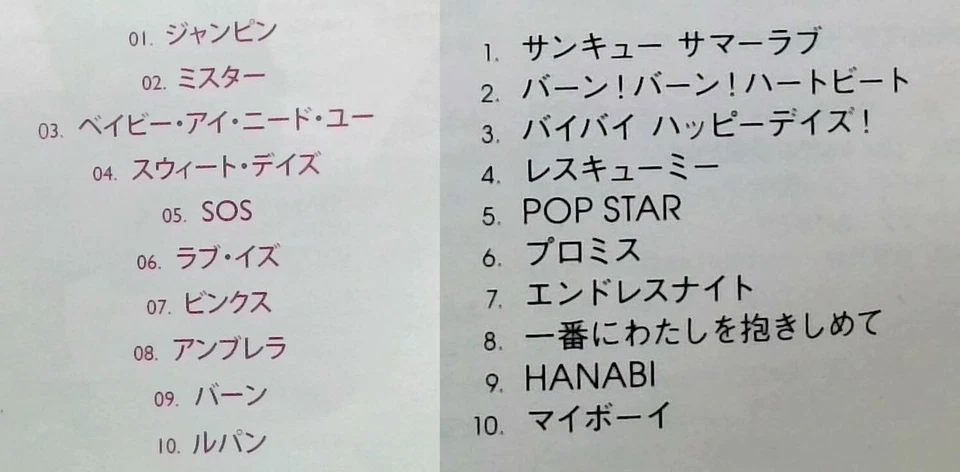 01. ジャンピン
02. ミスター
03. ベイビー・アイ・ニード・ユー
04. スウィート・デイズ
05. SOS
06. ラブ・イズ
07. ビンクス
08. アンブレラ
09. バーン
10. ルパン
1. サンキュー サマーラブ
2. バーン!バーン!ハートビート
3. バイバイ ハッピーデイズ!
4. レスキューミー
5. POP STAR
6. プロミス
7. エンドレスナイト
8. 一番にわたしを抱きしめて
9. HANABI
10. マイボーイ